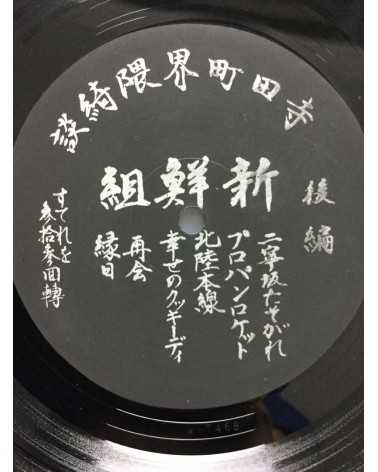 寺田町界隈綺談
新鮮組
後編
二寧坂たそがれ
プロパンロケット
北陸本線
幸せのクッキーディ
再会
縁日
すてれを
参拾参回轉